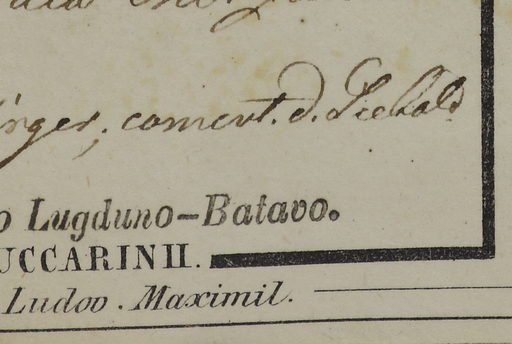 ürger; comert. d. Siebold
o Lugduno-Batavo.
UCCARINII.
Ludov. Maximil.